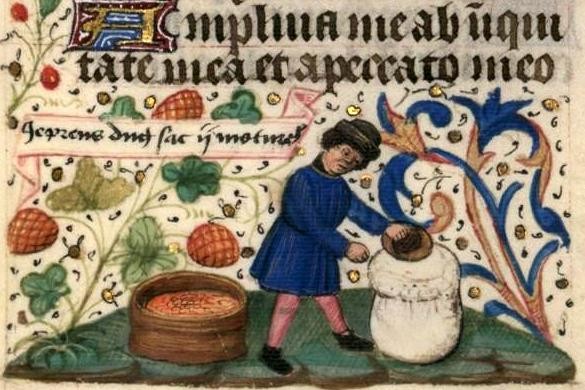 Amplius me ab iniqui
tate mea et a peccato meo
Je prens dug sac ij motures